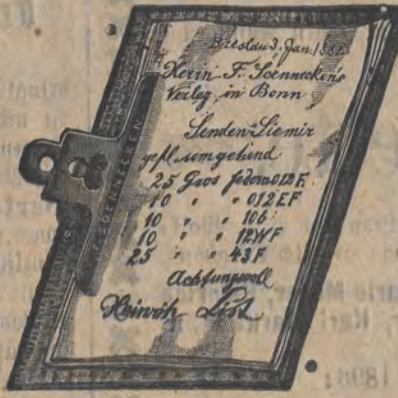 Breslau 3. Jan. 188
Herrn F. Soennecken's
Verlag in Bonn
Senden Sie mir
gefl. umgehend
25 Gros federn 012 F.
10 " " 012 EF
10 " " 106.
10 " " 12WF
25 " " 43F
Achtungsvoll
Heinrich List
F. SOENNECKEN
1898: